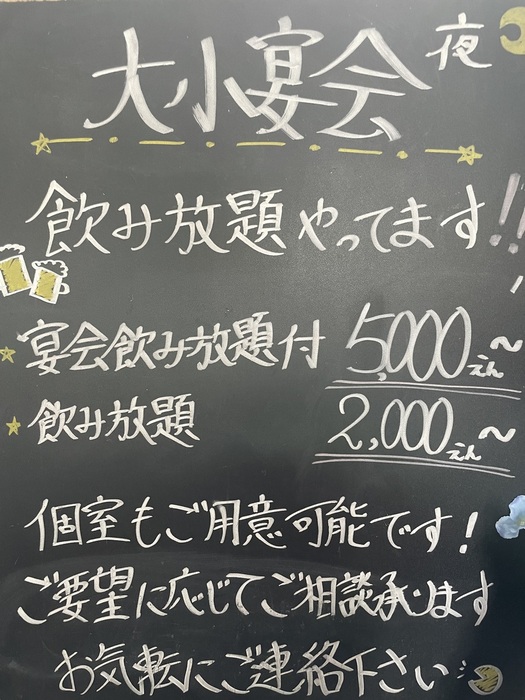 夜
大小宴会
飲み放題やってます!!
宴会飲み放題付 5,000えん〜
飲み放題 2,000えん〜
個室もご用意可能です!
ご要望に応じてご相談承ります
お気転にご連絡下さい